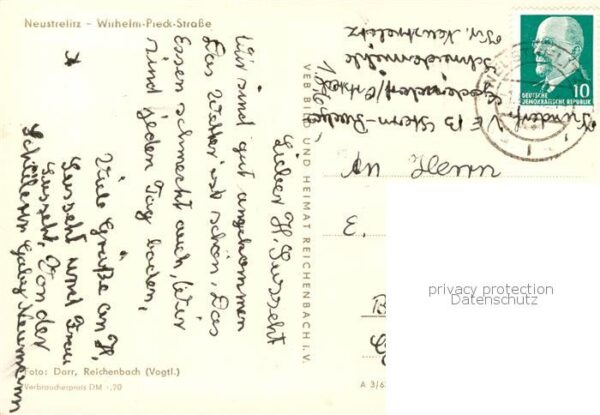 Neustrelitz - Wilhelm-Pieck-Straße
Lieber H. Gusseht
Wir sind gut angekommen
Das Wetter ist schön, Das
Essen schmeckt auch, Wir
sind jeden Tag baden,
Viele Grüße an H.
Gusseht und Frau
Gusseht, Von der
Schülerin Gaby Neumann
Foto: Darr, Reichenbach (Vogtl.)
Verbraucherpreis DM -,20
VEB BILD UND HEIMAT REICHENBACH i. V.
A 3/6
DEUTSCHE
DEMOKRATISCHE REPUBLIK
10
VEB Stern-Radio
Schneidemühle
Kr. Neustrelitz
An Herrn
E.
B
privacy protection
Datenschutz